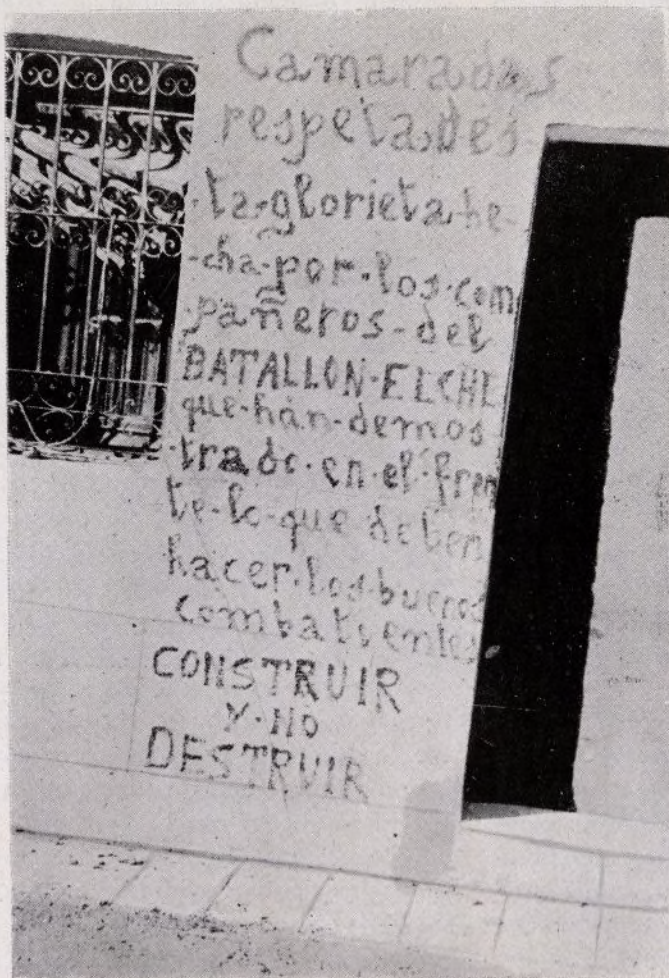 Camaradas
respetades
la-glorieta-he-
-cha-por-los-com
pañeros-del
BATALLON-ELCHE
que-han-demos
-trado-en-el-fren
te-lo-que deben
hacer-los-buenos
combatientes
CONSTRUIR
Y-NO
DESTRUIR